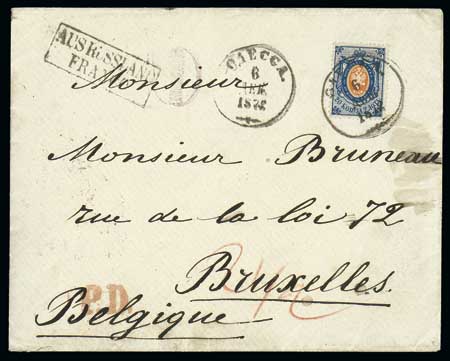 AUS RUSSLAND
FRANCO
ОДЕССА.
6
ДЕК.
1872
6
Monsieur
Monsieur Bruneau
rue de la loi 72
Bruxelles.
P.D.
Belgique